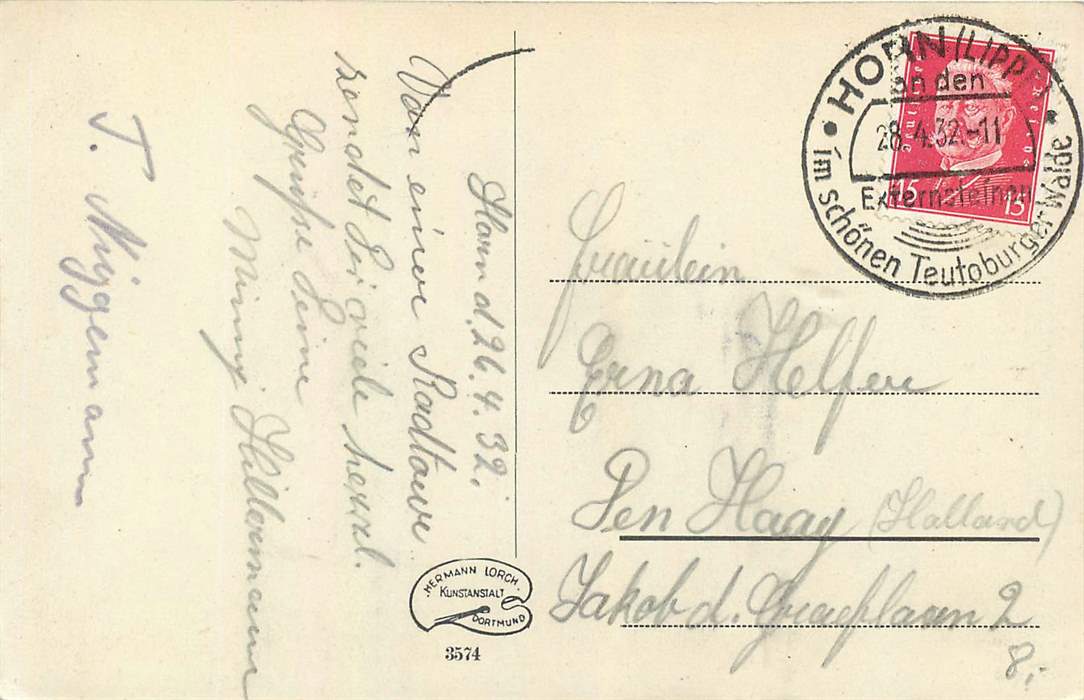 Horn d. 26.4.32.
Von einer Radtour
sendet Dir viele herzl.
Grüße Deine
Minny Hillermann
T. Niggemann
Fräulein
Erna Helfer
Den Haag (Holland)
Jakob d. Graeflaan 2
8.-
HORN (LIPPE)
an den
28.4.32.-11
Externsteinen
im schönen Teutoburger Walde
15 15
HERMANN LORCH.
KUNSTANSTALT
DORTMUND
3574